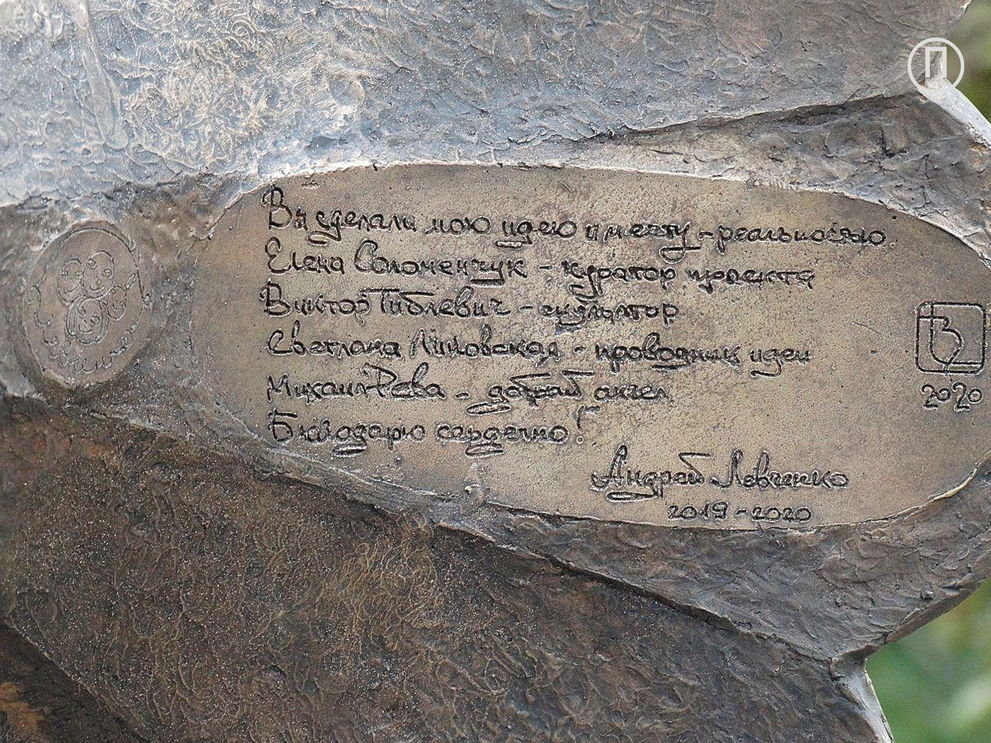 Вы сделали мою идею и мечту - реальностью.
Елена Соломенчук - куратор проекта
Виктор Гиблевич - скульптор
Светлана - проводник идеи
Михаил Рева - добрый ангел
Благодарю сердечно!
Андрей Левченко
2019 - 2020
2020
П